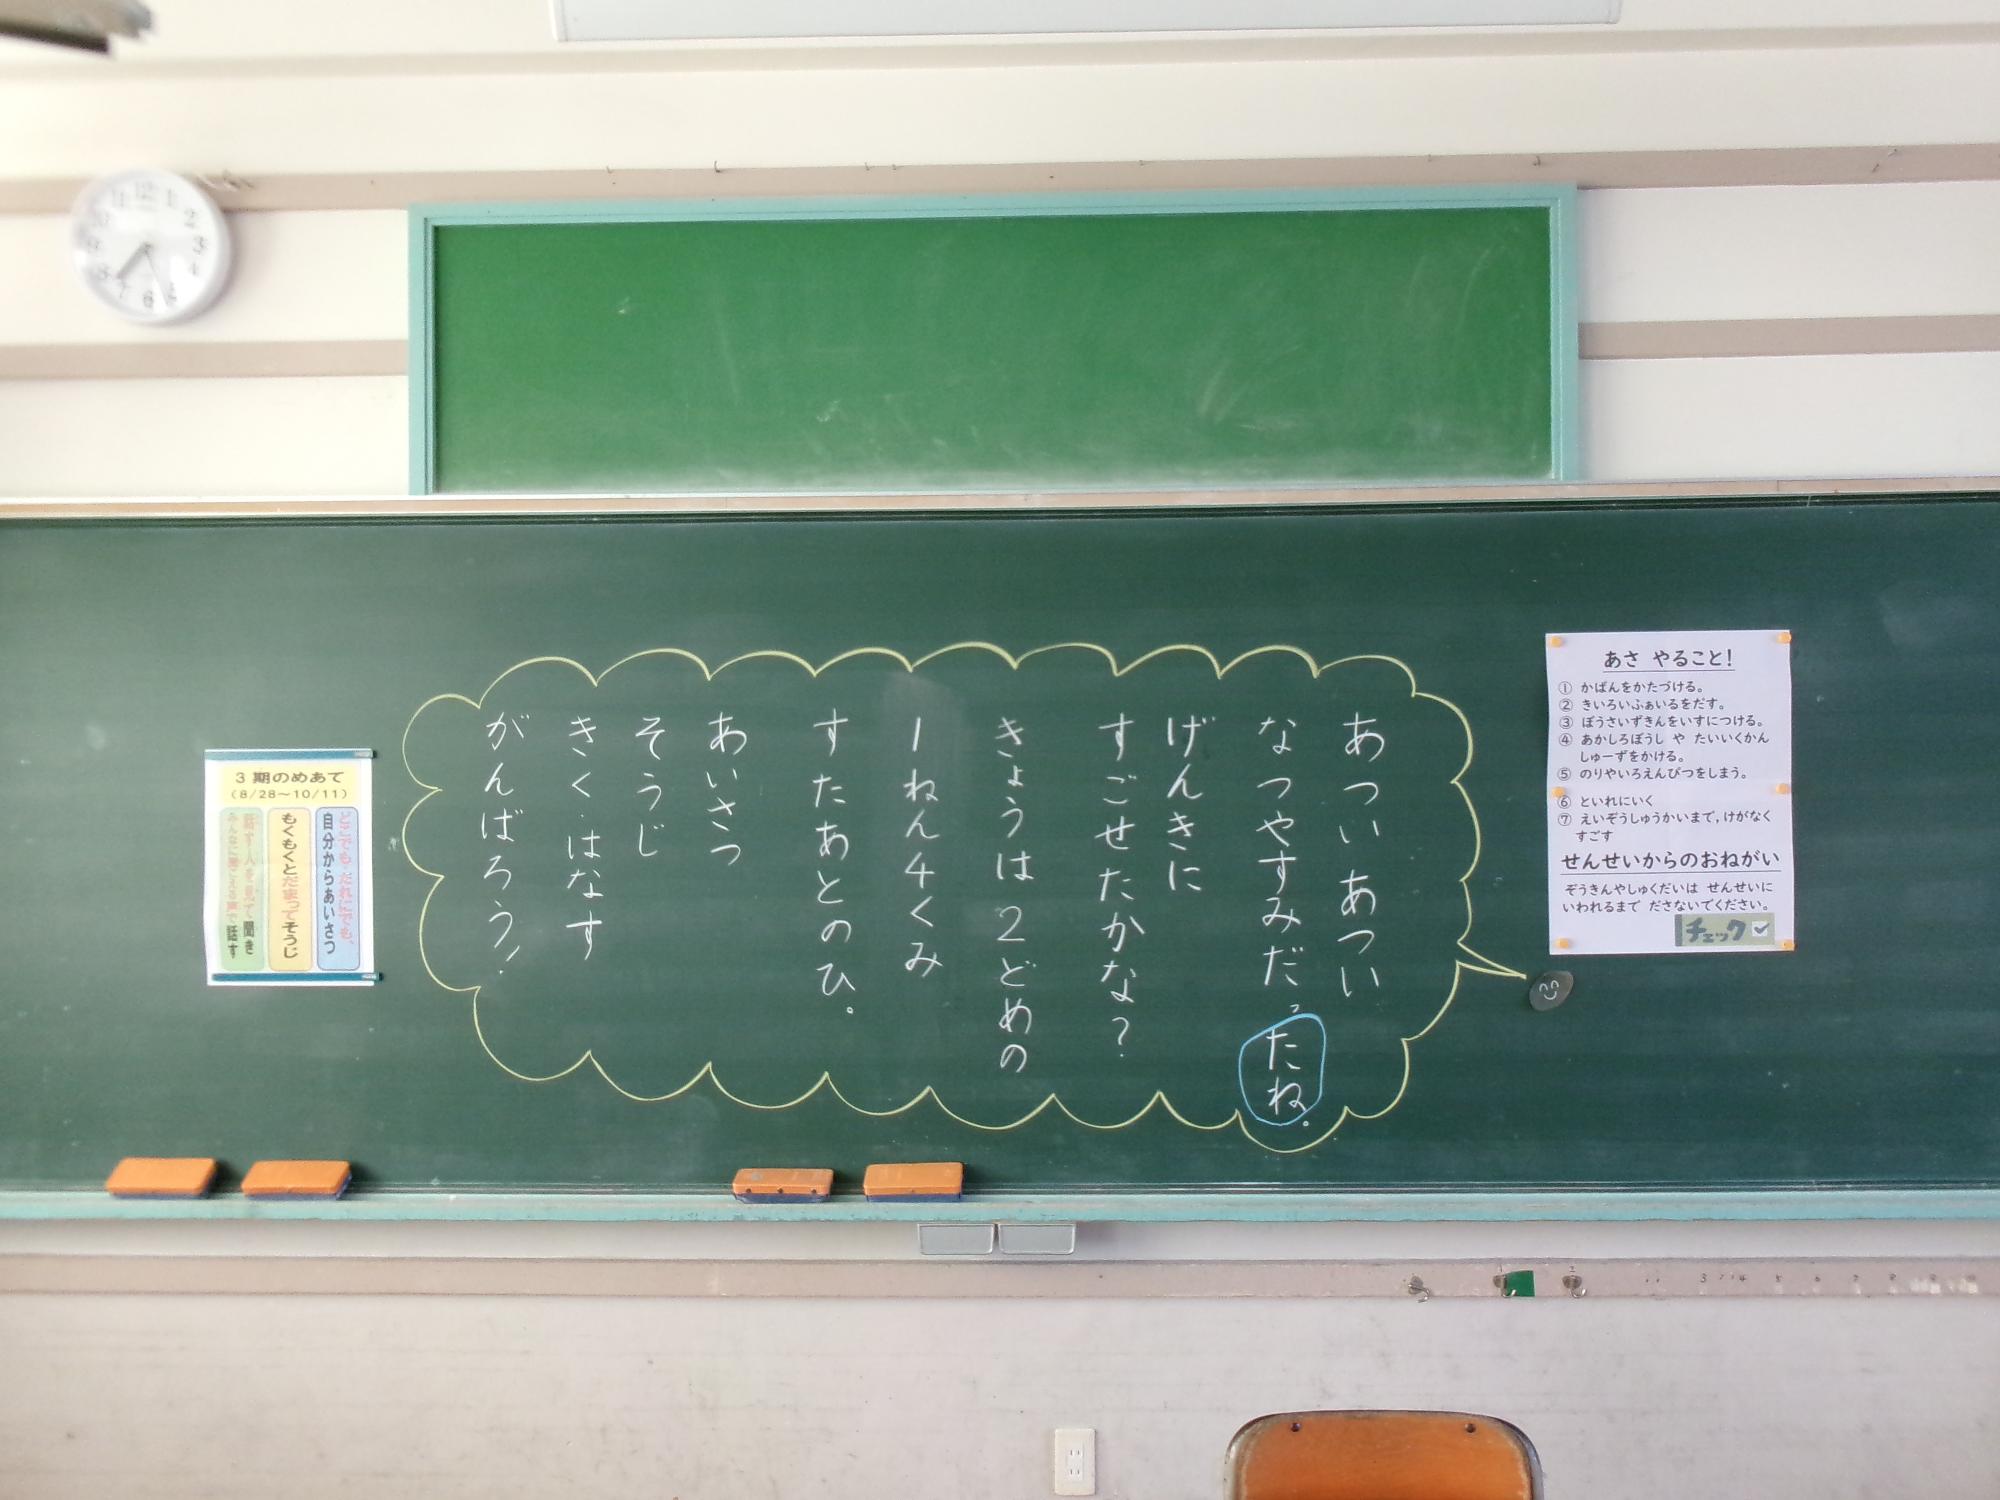 あさ やること!
① かばんをかたづける。
② きいろいふぁいるをだす。
③ ぼうさいずきんをいすにつける。
④ あかしろぼうし や たいいくかん
しゅーずをかける。
⑤ のりやいろえんぴつをしまう。
⑥ といれにいく
⑦ えいぞうしゅうかいまで,けがなく
すごす
せんせいからのおねがい
ぞうきんやしゅくだいは せんせいに
いわれるまで ださないでください。
チェック
あついあつい
なつやすみだったね。
げんきに
すごせたかな?
きょうは2どめの
1ねん4くみ
すたあとのひ。
あいさつ
そうじ
きく・はなす
がんばろう!
3期のめあて
(8/28~10/11)
どこでも、だれにでも、
自分からあいさつ
もくもくとだまってそうじ
話す人を見て聞き
みんなに聞こえる声で話す
12
1
2
3
4
5
6
7
8
9
10
11